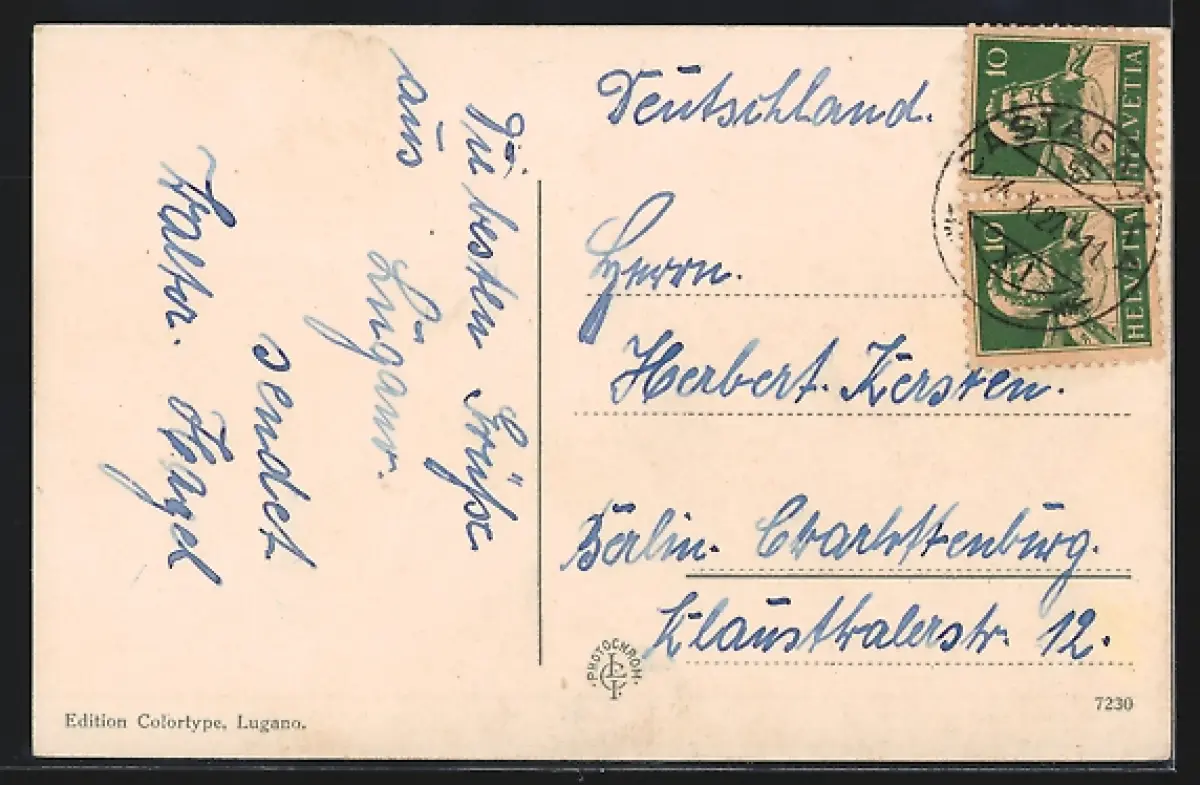 Die besten Grüße
aus Lugano.
sendet
Walter.
Deutschland.
Herrn.
Herbert. Kersten.
Berlin. Charlottenburg.
Klausthalerstr. 12.
10 HELVETIA
10 HELVETIA
CASTAG
PHOTOCHROM.
Edition Colortype, Lugano.
7230